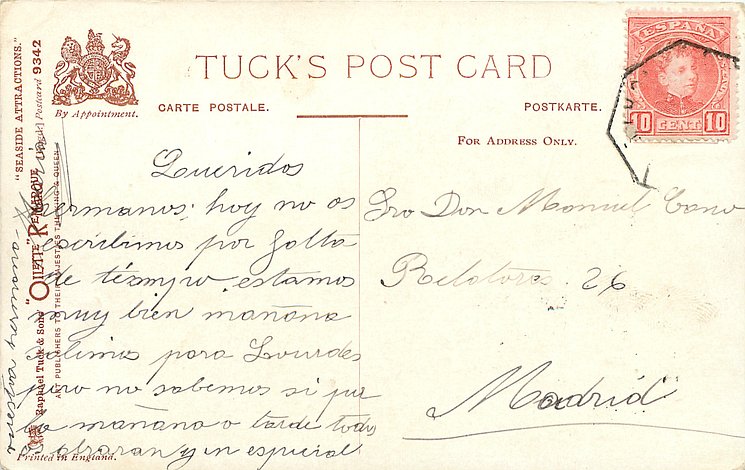 TUCK'S POST CARD
CARTE POSTALE.
POSTKARTE.
FOR ADDRESS ONLY.
By Appointment.
"SEASIDE ATTRACTIONS."
Postcard 9342
"OILETTE" REMARQUE
Raphael Tuck & Sons'
ART PUBLISHERS TO THEIR MAJESTIES THE KING & QUEEN
Printed in England.
ESPAÑA
10 CENT 10
Queridos
hermanos; hoy no os
escribimos por falta
de tiempo estamos
muy bien mañana
salimos para Lourdes
pero no sabemos si por
la mañana o tarde todos
os abrazan y en especial
Sro Don Manuel Cano
Relatores 26
Madrid